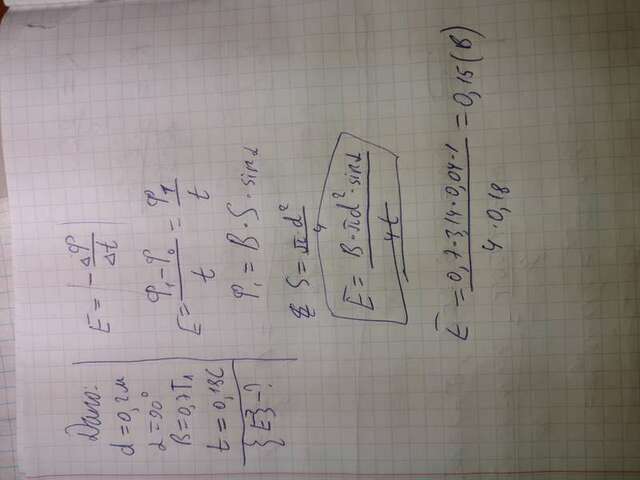 Дано:
d = 0,2 м
α = 90°
B = 0,7 Тл
t = 0,18 C
{E} - ?
E = |- ΔФ/Δt|
E = Ф₁ - Ф₀/t = Ф₁/t
Ф₁ = B · S · sin α
S = π d²/4
E = B · π d² · sin α/4t
E = 0,7 · 3,14 · 0,04 · 1/4 · 0,18 = 0,15 (В)